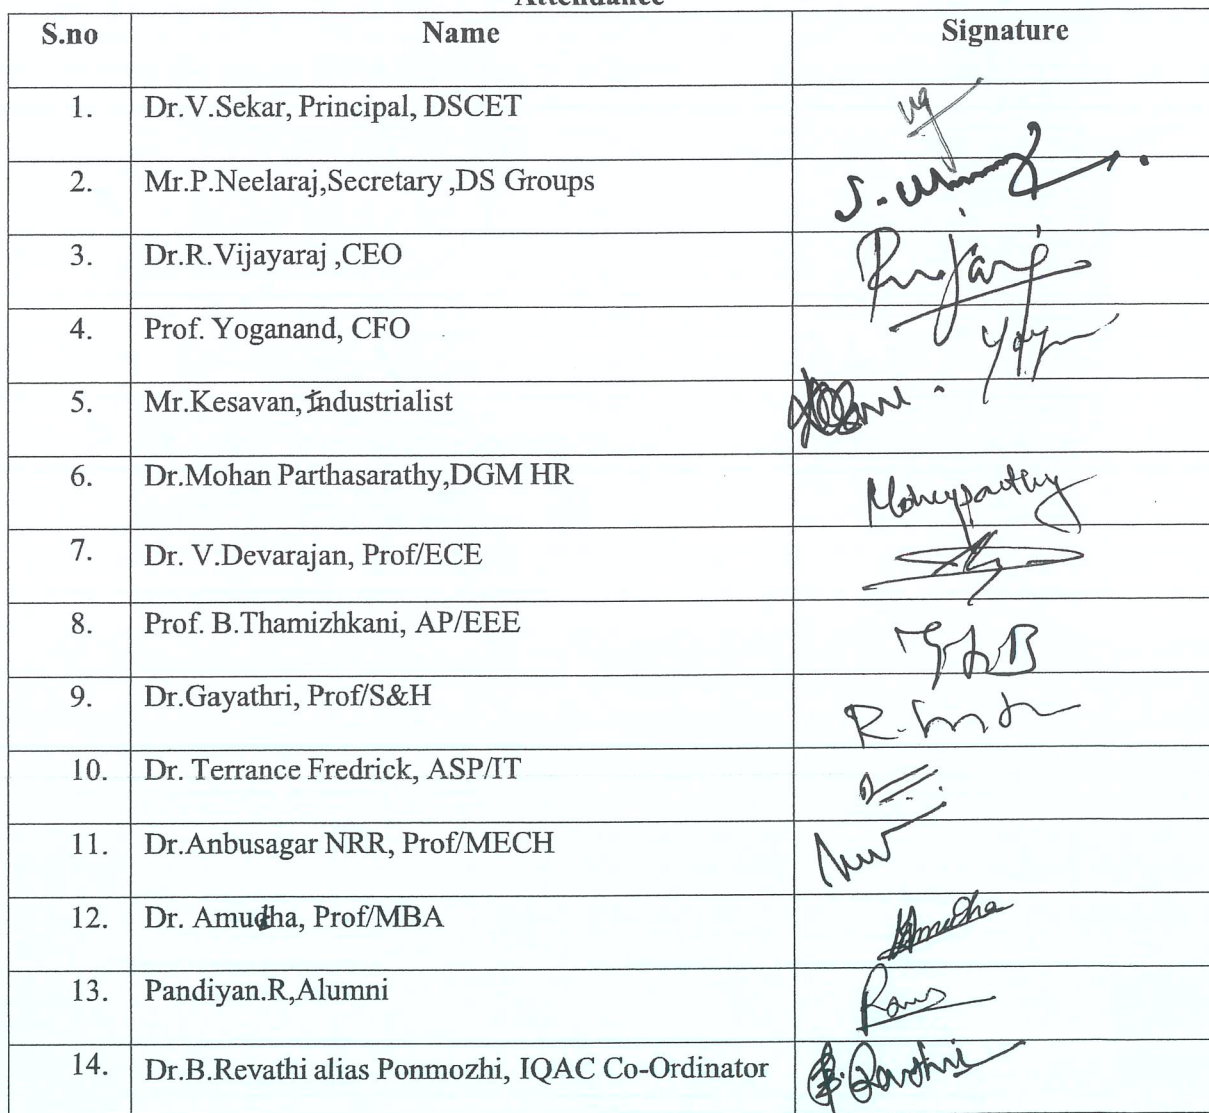 Attendance
S.no Name Signature
1. Dr.V.Sekar, Principal, DSCET
2. Mr.P.Neelaraj,Secretary ,DS Groups
3. Dr.R.Vijayaraj ,CEO
4. Prof. Yoganand, CFO
5. Mr.Kesavan, Industrialist
6. Dr.Mohan Parthasarathy,DGM HR
7. Dr. V.Devarajan, Prof/ECE
8. Prof. B.Thamizhkani, AP/EEE
9. Dr.Gayathri, Prof/S&H
10. Dr. Terrance Fredrick, ASP/IT
11. Dr.Anbusagar NRR, Prof/MECH
12. Dr. Amudha, Prof/MBA Amudha
13. Pandiyan.R,Alumni
14. Dr.B.Revathi alias Ponmozhi, IQAC Co-Ordinator B.Revathi